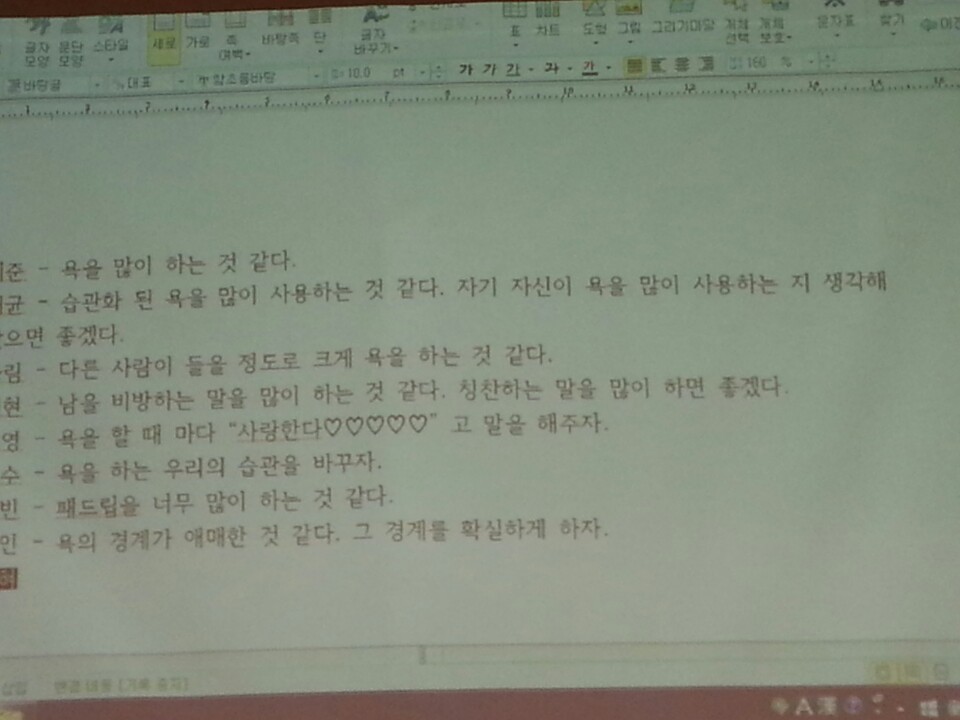 글자 문단 스타일 세로 가로 쪽 바탕쪽 단 글자 표 차트 도형 그림 그리기마당 개체 개체 문자표 찾기
모양 모양 여백 바꾸기 선택 보호
바탕글 대표 함초롬바탕 10.0 pt 가 가 가 가 가 160 %
준 - 욕을 많이 하는 것 같다.
균 - 습관화 된 욕을 많이 사용하는 것 같다. 자기 자신이 욕을 많이 사용하는 지 생각해
으면 좋겠다.
림 - 다른 사람이 들을 정도로 크게 욕을 하는 것 같다.
현 - 남을 비방하는 말을 많이 하는 것 같다. 칭찬하는 말을 많이 하면 좋겠다.
영 - 욕을 할 때 마다 “사랑한다♡♡♡♡♡” 고 말을 해주자.
수 - 욕을 하는 우리의 습관을 바꾸자.
빈 - 패드립을 너무 많이 하는 것 같다.
인 - 욕의 경계가 애매한 것 같다. 그 경계를 확실하게 하자.
삽입 변경 내용 [기록 중지]
A 漢